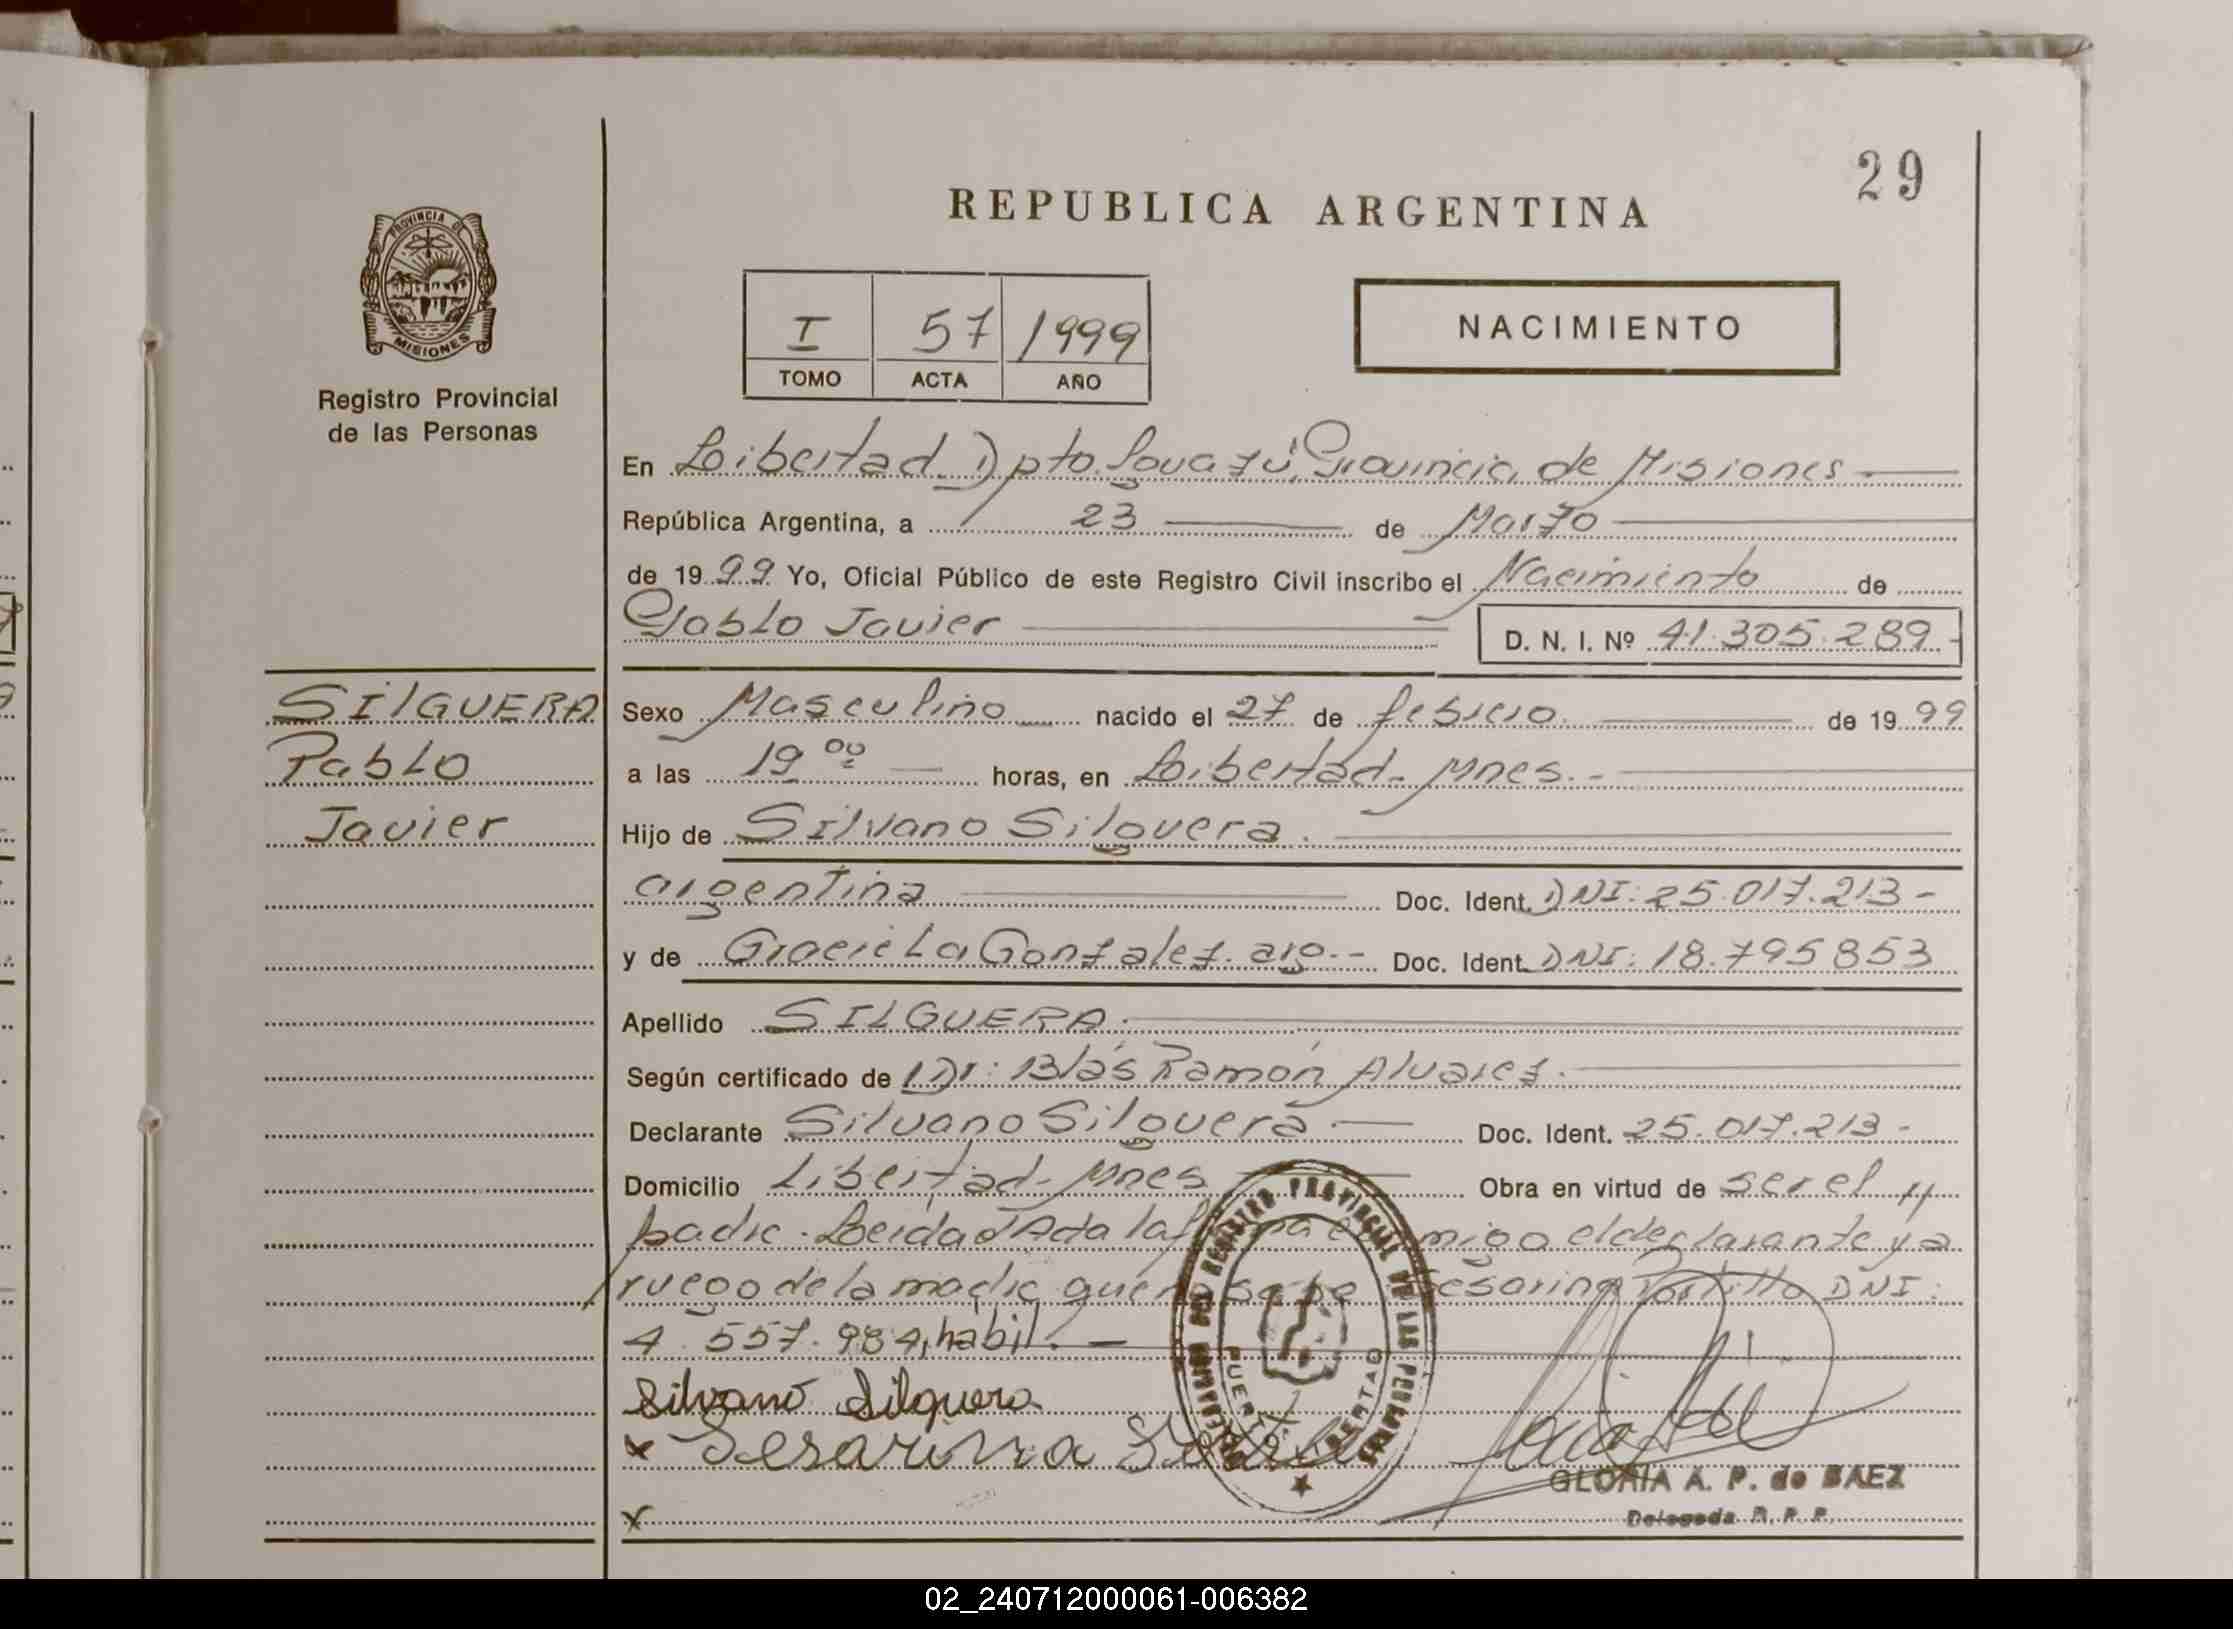 29
REPUBLICA ARGENTINA
PROVINCIA DE
MISIONES
Registro Provincial
de las Personas
I 57 1999
TOMO ACTA AÑO
NACIMIENTO
En Libertad Dpto. Iguazú, Provincia de Misiones
República Argentina, a 23 de Marzo
de 1999 Yo, Oficial Público de este Registro Civil inscribo el Nacimiento de
Pablo Javier D. N. I. Nº 41.305.289.-
SILGUERA
Pablo
Javier
Sexo Masculino nacido el 27 de febrero de 1999
a las 19 00 horas, en Libertad - Mnes.-
Hijo de Silvano Silguera.
argentina Doc. Ident. DNI: 25.017.213-
y de Graciela Gonzalez. arg.- Doc. Ident. DNI: 18.795853
Apellido SILGUERA.
Según certificado de Dr: Blás Ramón Alvarez.
Declarante Silvano Silguera Doc. Ident. 25.017.213-
Domicilio Libertad - Mnes Obra en virtud de ser el
padre. Leida el Acta la firma conmigo el declarante y a
ruego de la madre que no sabe Sesarina Portillo DNI:
4.557.984, habil.-
Silvano Silguera
x Sesarina
x
REGISTRO PROVINCIAL DE LAS PERSONAS
PUERTO LIBERTAD
GLORIA A. P. de BAEZ
Delegada R. P. P.
02_240712000061-006382